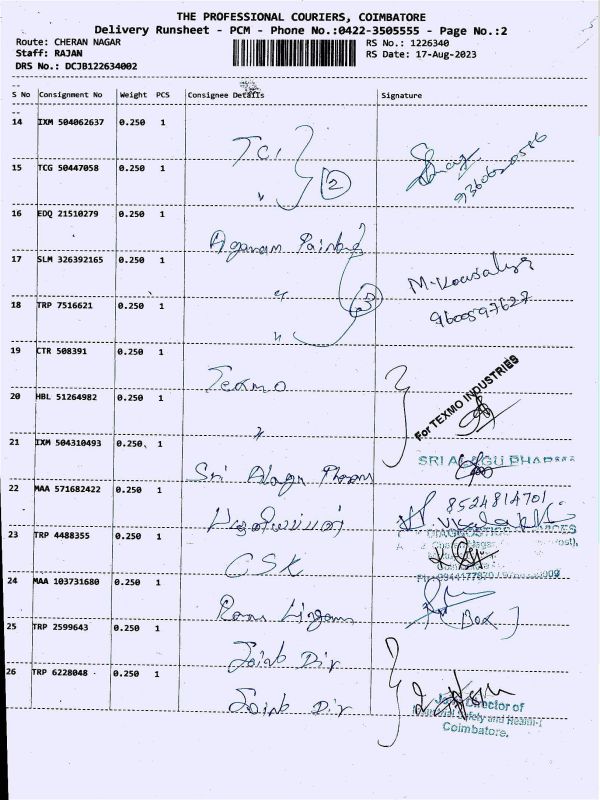 THE PROFESSIONAL COURIERS, COIMBATORE
Delivery Runsheet - PCM - Phone No.:0422-3505555 - Page No.:2
Route: CHERAN NAGAR RS No.: 1226340
Staff: RAJAN RS Date: 17-Aug-2023
DRS No.: DCJB122634002
S No Consignment No Weight PCS Consignee Details Signature
14 IXM 504062637 0.250 1
TCI
15 TCG 50447058 0.250 1
" 2 9360620586
16 EDQ 21510279 0.250 1
Agaram
17 SLM 326392165 0.250 1
" 3 M. Kowsalya
18 TRP 7516621 0.250 1 9600597627
"
19 CTR 508391 0.250 1
Texmo
20 HBL 51264982 0.250 1
" For TEXMO INDUSTRIES
21 IXM 504310493 0.250 1
Sri Alagu SRI ALAGU
22 MAA 571682422 0.250 1
8524814701
23 TRP 4488355 0.250 1
CSK
24 MAA 103731680 0.250 1
Box
25 TRP 2599643 0.250 1
Joint Dir
26 TRP 6228048 0.250 1
Joint Dir
Joint Director of
Industrial Safety and Health-I
Coimbatore.